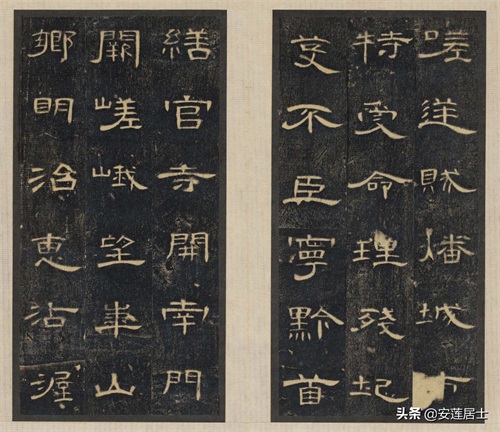 嗟逆賊燔城市
特受命理殘圮
芟不臣寧黔首
繕官寺開南門
闕嵯峨望華山
鄉明治惠沾渥
头条 @安莲居士